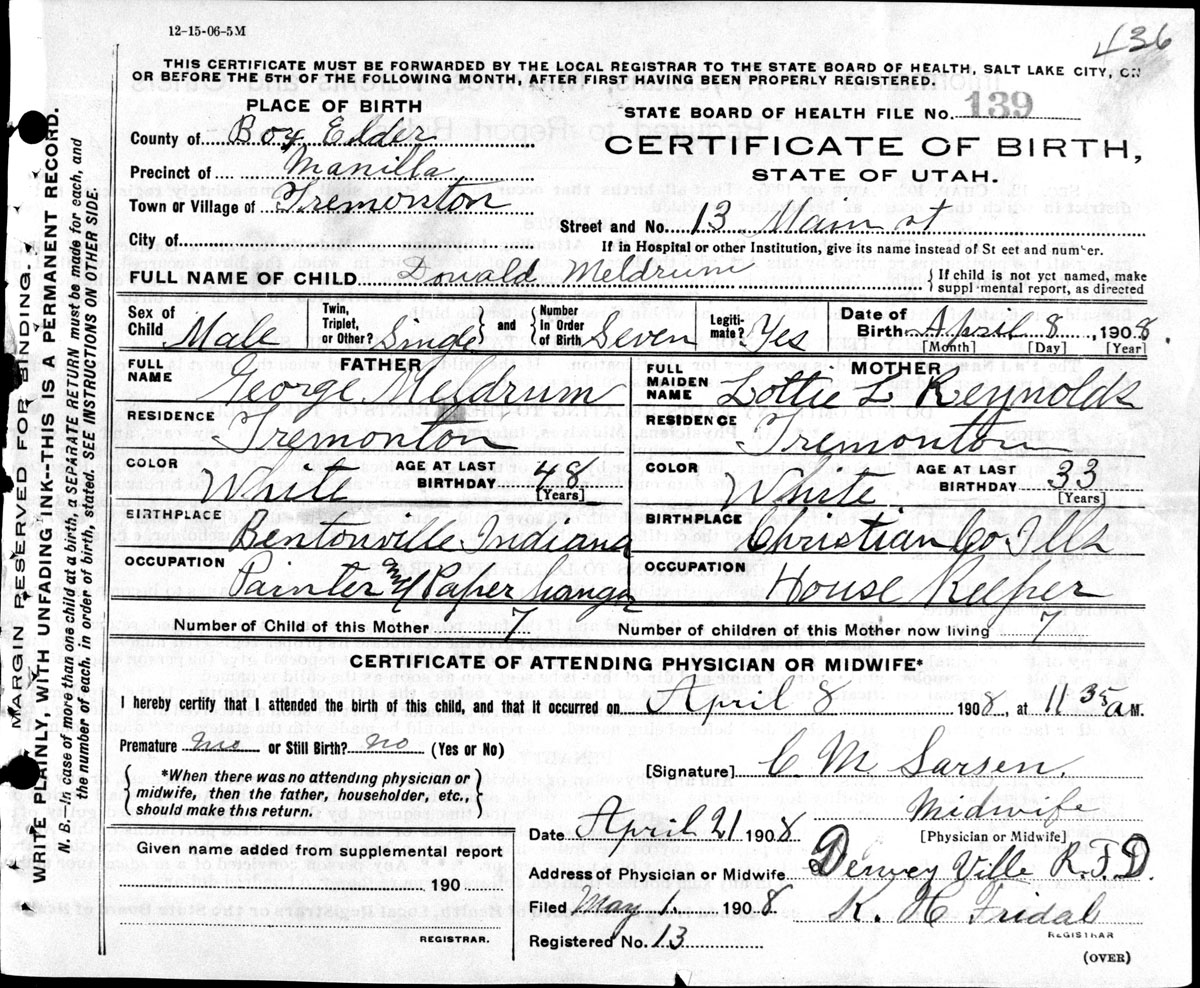 12-15-06-5M
436
THIS CERTIFICATE MUST BE FORWARDED BY THE LOCAL REGISTRAR TO THE STATE BOARD OF HEALTH, SALT LAKE CITY, ON
OR BEFORE THE 5TH OF THE FOLLOWING MONTH, AFTER FIRST HAVING BEEN PROPERLY REGISTERED.
PLACE OF BIRTH
STATE BOARD OF HEALTH FILE No. 139
County of Box Elder
CERTIFICATE OF BIRTH,
Precinct of Manilla
STATE OF UTAH.
Town or Village of Tremonton
Street and No. 13 Main st
City of
If in Hospital or other Institution, give its name instead of St eet and number.
FULL NAME OF CHILD Donald Meldrum
If child is not yet named, make
suppl mental report, as directed
Sex of Child Male
Twin, Triplet, or Other? Single
and
Number In Order of Birth Seven
Legiti-mate? Yes
Date of Birth April 8, 1908
[Month] [Day] [Year]
FATHER
FULL NAME George Meldrum
RESIDENCE Tremonton
COLOR White
AGE AT LAST BIRTHDAY 48
[Years]
BIRTHPLACE Bentonville Indiana
OCCUPATION Painter & Paper Hanger
MOTHER
FULL MAIDEN NAME Lottie L Reynolds
RESIDENCE Tremonton
COLOR White
AGE AT LAST BIRTHDAY 33
[Years]
BIRTHPLACE Christian Co Ills
OCCUPATION House Keeper
Number of Child of this Mother 7
Number of children of this Mother now living 7
CERTIFICATE OF ATTENDING PHYSICIAN OR MIDWIFE*
I hereby certify that I attended the birth of this child, and that it occurred on April 8 1908, at 11 35 a M.
Premature no or Still Birth? no (Yes or No)
*When there was no attending physician or
midwife, then the father, householder, etc.,
should make this return.
[Signature] C M Larsen.
Midwife
[Physician or Midwife]
Date April 21 1908
Given name added from supplemental report
190
REGISTRAR.
Address of Physician or Midwife Dewey Ville R.F.D.
Filed May 1. 1908
K. H Fridal
REGISTRAR
Registered No. 13
(OVER)
MARGIN RESERVED FOR BINDING.
WRITE PLAINLY, WITH UNFADING INK--THIS IS A PERMANENT RECORD.
N. B.--In case of more than one child at a birth, a SEPARATE RETURN must be made for each, and
the number of each, in order of birth, stated. SEE INSTRUCTIONS ON OTHER SIDE.